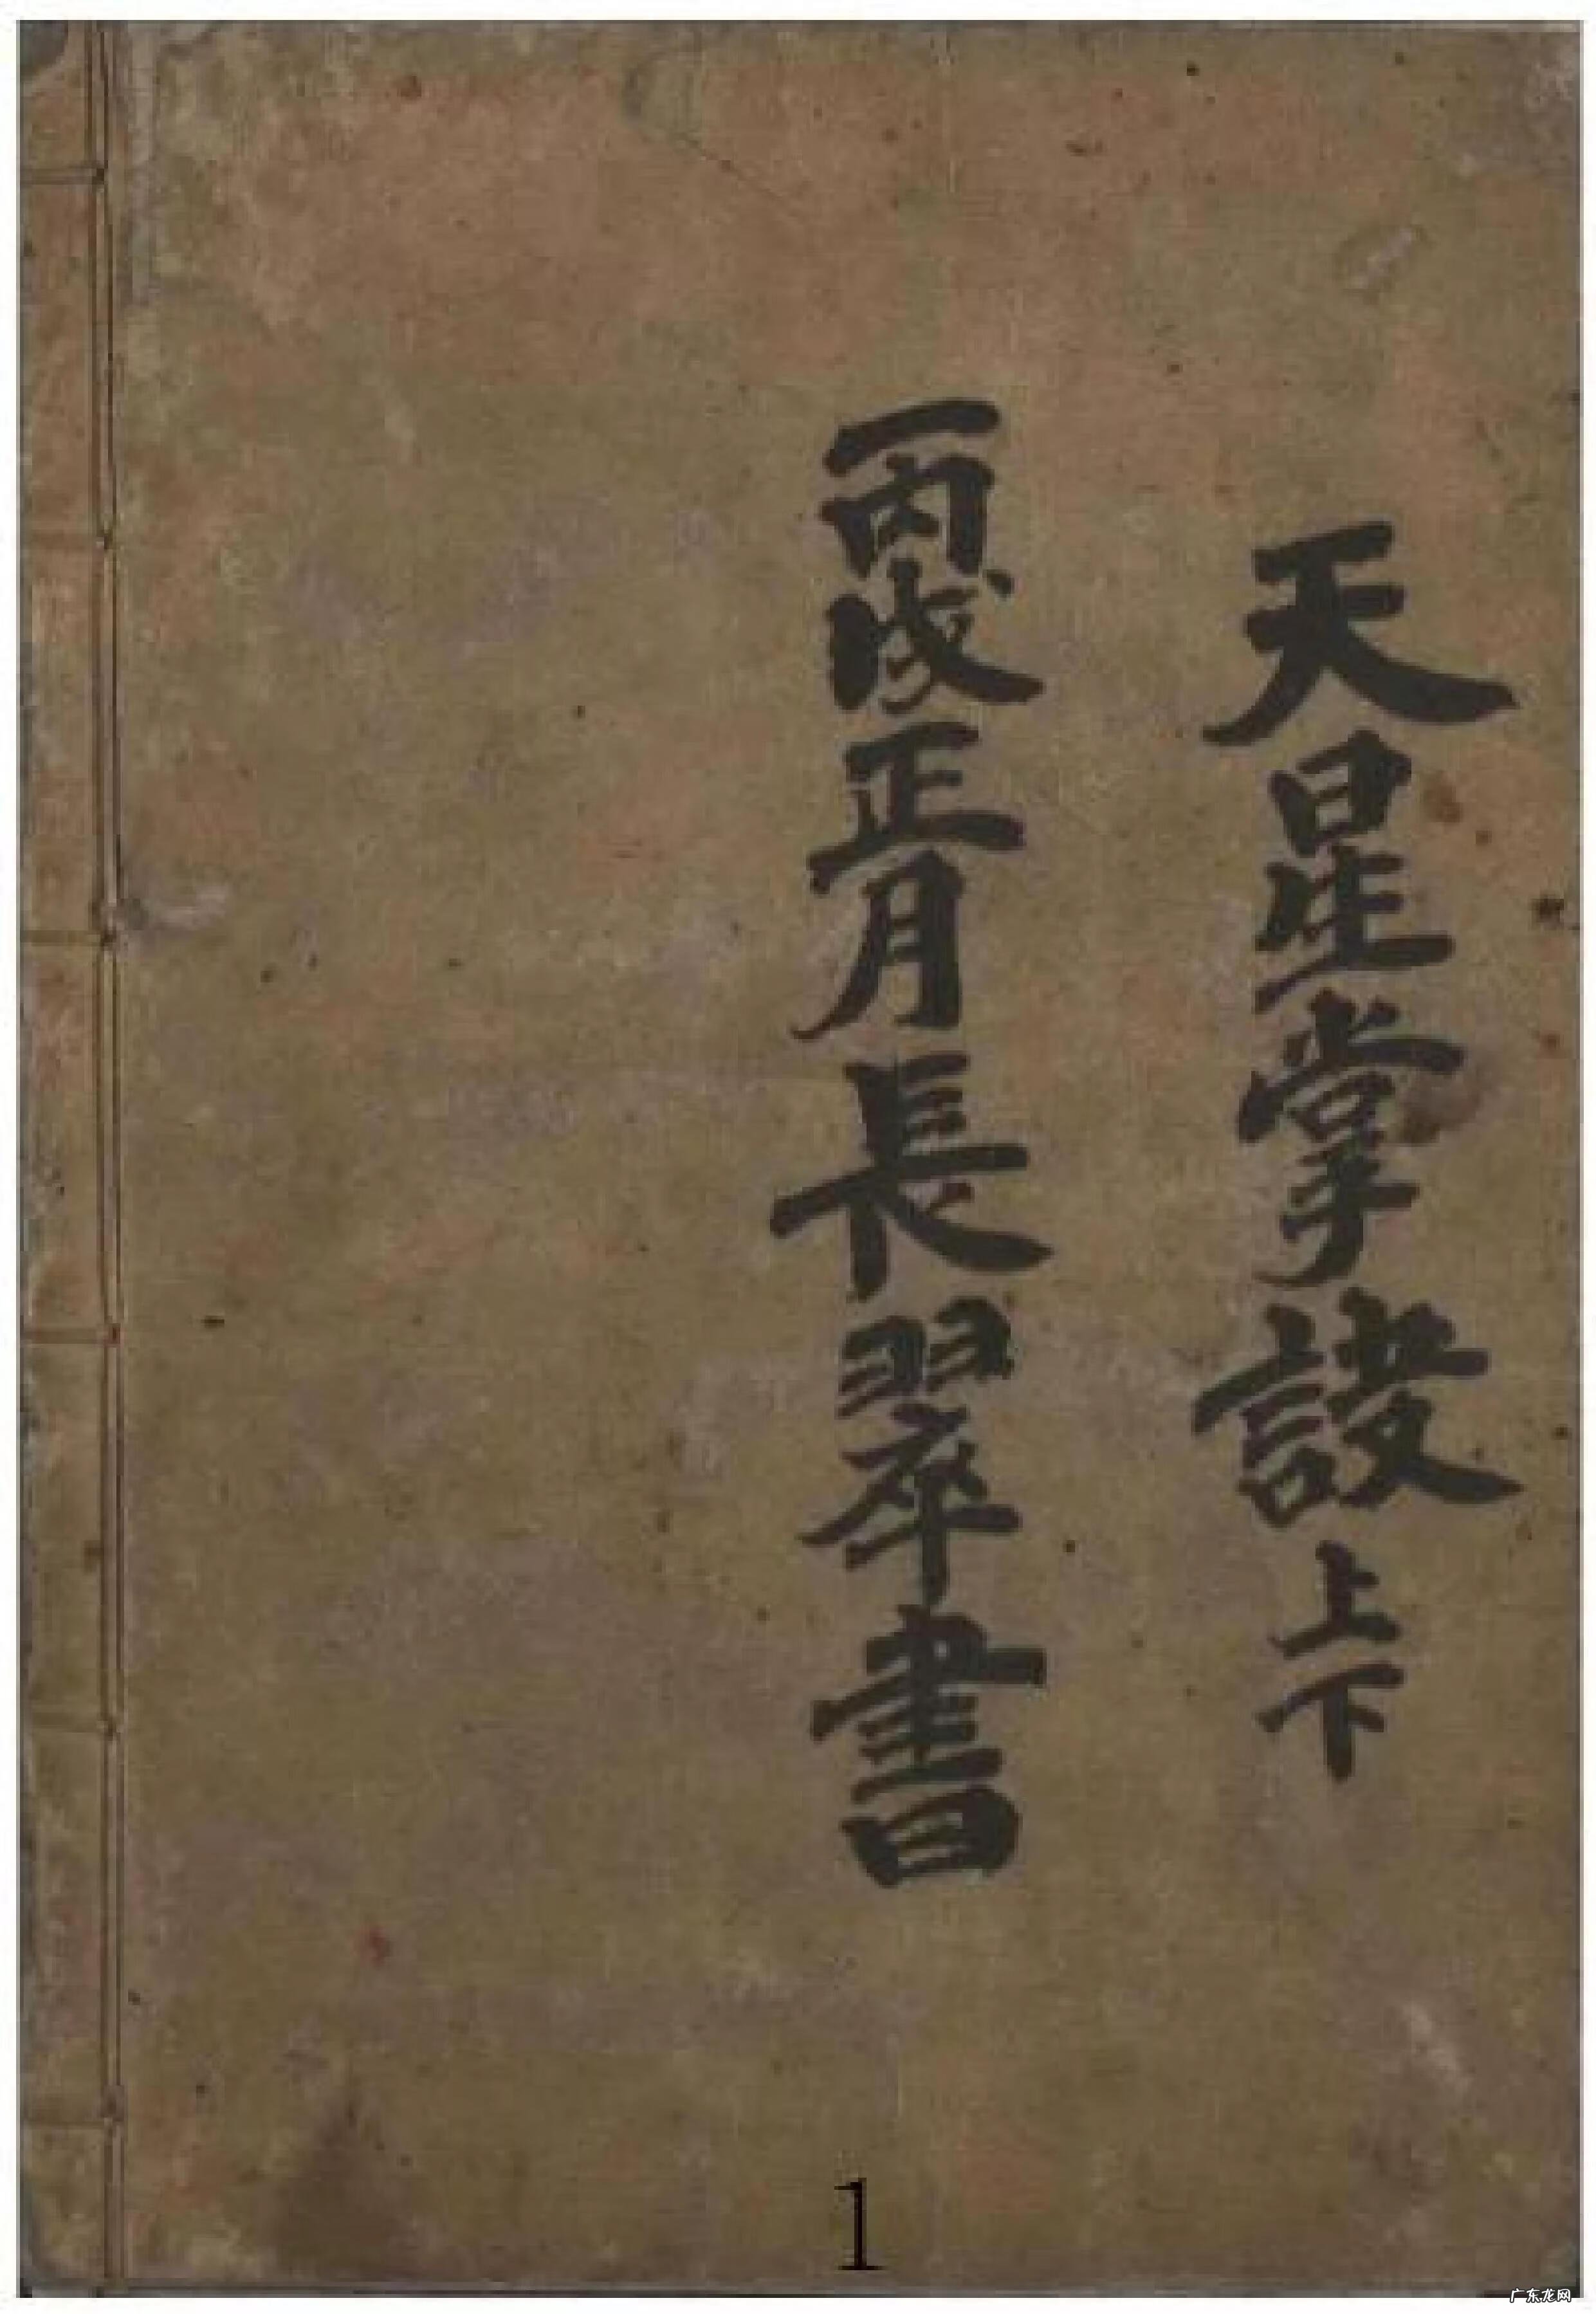 天星掌上下
丙戌正月長翠書
1
广东龙网